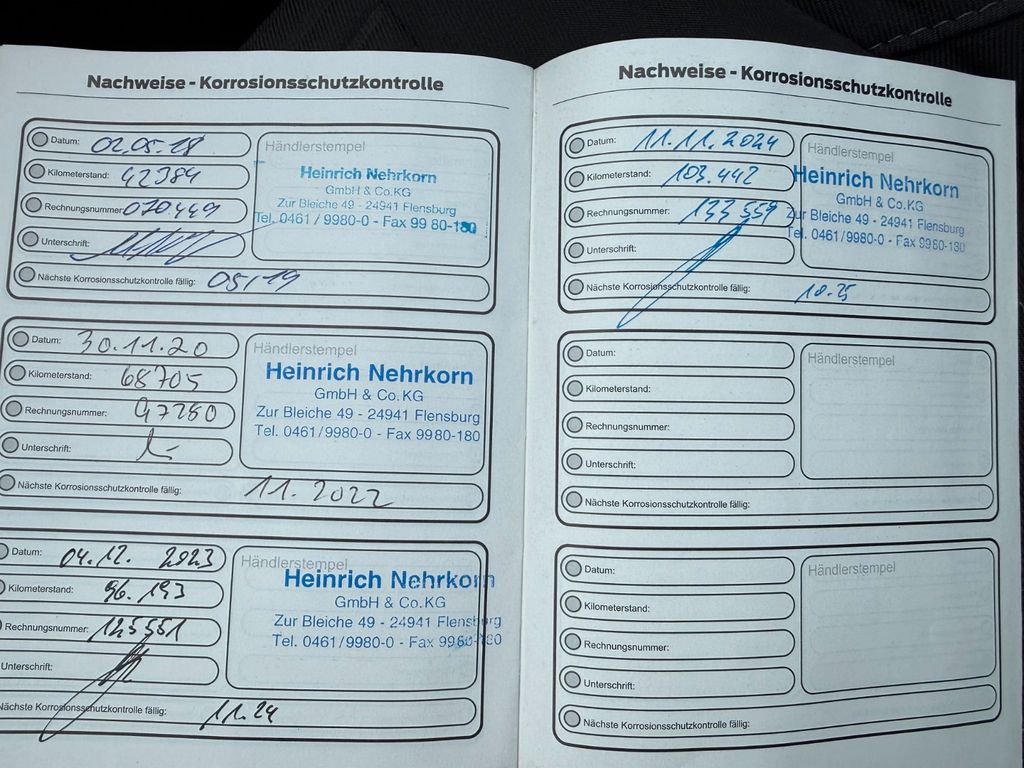 Nachweise - Korrosionsschutzkontrolle
Datum: 02.05.18
Händlerstempel
Kilometerstand: 42384
Rechnungsnummer: 070449
Unterschrift:
Heinrich Nehrkorn
GmbH & Co.KG
Zur Bleiche 49 - 24941 Flensburg
Tel. 0461 / 9980-0 - Fax 99 80-180
Nächste Korrosionsschutzkontrolle fällig: 05/19
Datum: 30.11.20
Händlerstempel
Kilometerstand: 68705
Rechnungsnummer: 97280
Unterschrift:
Heinrich Nehrkorn
GmbH & Co.KG
Zur Bleiche 49 - 24941 Flensburg
Tel. 0461/9980-0 - Fax 9980-180
Nächste Korrosionsschutzkontrolle fällig: 11.2022
Datum: 04.12. 2023
Händlerstempel
Kilometerstand: 96.193
Rechnungsnummer: 125551
Unterschrift:
Heinrich Nehrkorn
GmbH & Co.KG
Zur Bleiche 49 - 24941 Flensburg
Tel. 0461/9980-0 - Fax 9980-180
Nächste Korrosionsschutzkontrolle fällig: 11.24
Nachweise - Korrosionsschutzkontrolle
Datum: 11.11.2024
Händlerstempel
Kilometerstand: 103.442
Rechnungsnummer: 133559
Unterschrift:
Heinrich Nehrkorn
GmbH & Co.KG
Zur Bleiche 49 - 24941 Flensburg
Tel. 0461/9980-0 - Fax 9980-180
Nächste Korrosionsschutzkontrolle fällig: 10.25
Datum:
Händlerstempel
Kilometerstand:
Rechnungsnummer:
Unterschrift:
Nächste Korrosionsschutzkontrolle fällig:
Datum:
Händlerstempel
Kilometerstand:
Rechnungsnummer:
Unterschrift:
Nächste Korrosionsschutzkontrolle fällig: